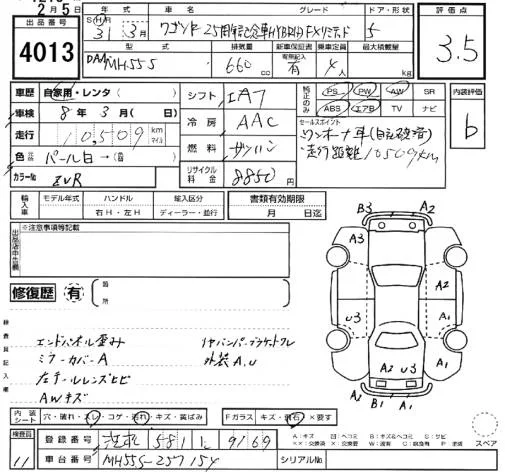 2月5日
出品番号
4013
年式
車名
グレード
ドア・形状
SHR 31年 3月
ワゴンR 25周年記念車HYBRID FXリミテッド
5
型式
排気量
新車保証書
乗車定員
最大積載量
DAA MH55S
660 cc
有無記入
有
4人
kg
評価点
3.5
車歴 自家用・レンタ( )
車検 8年 3月( 日)
走行 10,509 km マイル
色 パール白→(替 )
カラーNo ZVR
シフト
冷房 AAC
燃料 ガソリン
リサイクル料金 8850円
純正のみ
PS PW AW SR
ABS エアB TV ナビ
セールスポイント
ワンオーナー車(自社改済)
走行距離10509km
内装評価
b
輸入車
モデル年式
ハンドル
右H・左H
輸入区分
ディーラー・並行
書類有効期限
月 日迄
出品店申告主義
※注意事項等記載
修復歴 有
箇所
検査員記入欄
エンドパネル歪み
ミラーカバーA
左テールレンズヒビ
AWキズ
外装A,U
B3 A2
A3
A2
A3
U3
A1
A2 U3
A1
A2 A2
B1 A1
内装シート
穴・破れ・スレ・コゲ・汚れ・キズ・黄ばみ
Fガラス
キズ・飛石・×要す
スペア
検査員
11
登録番号 581 い 9169
車台番号 MH55S-257154
シリアルNo